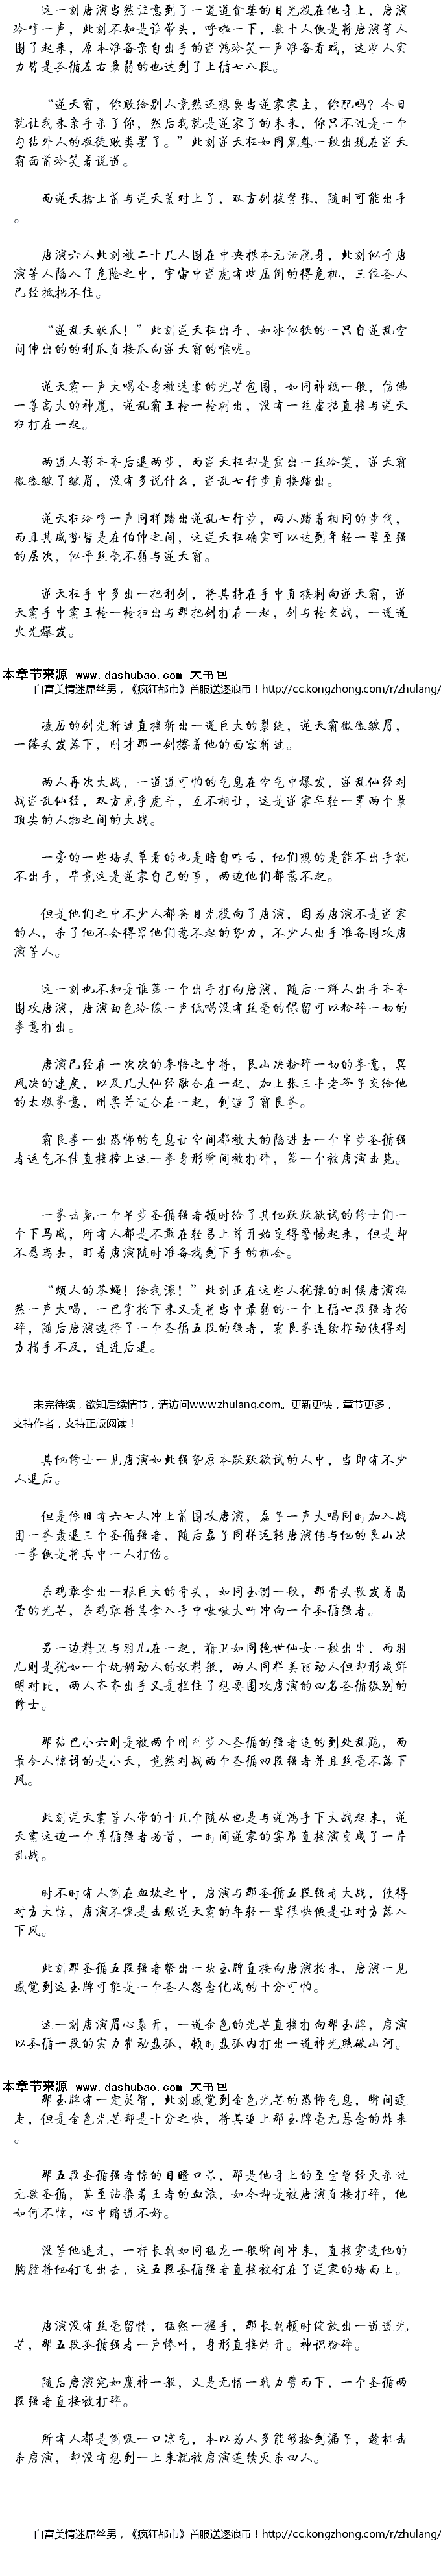 这一刻唐演当然注意到了一道道贪婪的目光投在他身上，唐演
冷哼一声，此刻不知是谁带头，呼啦一下，数十人便是将唐演等人
围了起来，原本准备亲自出手的逆鸿冷笑一声准备看戏，这些人实
力皆是圣循左右最弱的也达到了上循七八段。
“逆天霸，你败给别人竟然还想要当逆家家主，你配吗？今日
就让我来亲手杀了你，然后我就是逆家了的未来，你只不过是一个
勾结外人的叛徒败类罢了。”此刻逆天枉如同鬼魅一般出现在逆天
霸面前冷笑着说道。
而逆天擒上前与逆天荒对上了，双方剑拔弩张，随时可能出手
。
唐演六人此刻被二十几人围在中央根本无法脱身，此刻似乎唐
演等人陷入了危险之中，宇宙中逆虎有些压倒的得危机，三位圣人
已经抵挡不住。
“逆乱天妖爪！”此刻逆天枉出手，如冰似铁的一只自逆乱空
间伸出的的利爪直接爪向逆天霸的喉咙。
逆天霸一声大喝全身被迷雾的光芒包围，如同神祇一般，仿佛
一尊高大的神魔，逆乱霸王枪一枪刺出，没有一丝虚招直接与逆天
枉打在一起。
两道人影齐齐后退两步，而逆天枉却是露出一丝冷笑，逆天霸
微微皱了皱眉，没有多说什么，逆乱七行步直接踏出。
逆天枉冷哼一声同样踏出逆乱七行步，两人踏着相同的步伐，
而且其威势皆是在伯仲之间，这逆天枉确实可以达到年轻一辈至强
的层次，似乎丝毫不弱与逆天霸。
逆天枉手中多出一把利剑，将其持在手中直接刺向逆天霸，逆
天霸手中霸王枪一枪扫出与那把剑打在一起，剑与枪交战，一道道
火光爆发。
本章节来源 www.dashubao.com 大书包
白富美情迷屌丝男，《疯狂都市》首服送逐浪币！http://cc.kongzhong.com/r/zhulang/
凌厉的剑光斩过直接斩出一道巨大的裂缝，逆天霸微微皱眉，
一缕头发落下，刚才那一剑擦着他的面容斩过。
两人再次大战，一道道可怕的气息在空气中爆发，逆乱仙经对
战逆乱仙经，双方龙争虎斗，互不相让，这是逆家年轻一辈两个最
顶尖的人物之间的大战。
一旁的一些墙头草看的也是暗自咋舌，他们想的是能不出手就
不出手，毕竟这是逆家自己的事，两边他们都惹不起。
但是他们之中不少人都卷目光投向了唐演，因为唐演不是逆家
的人，杀了他不会得罪他们惹不起的势力，不少人出手准备围攻唐
演等人。
这一刻也不知是谁第一个出手打向唐演，随后一群人出手齐齐
围攻唐演，唐演面色冷俊一声低喝没有丝毫的保留可以粉碎一切的
拳意打出。
唐演已经在一次次的参悟之中将，艮山决粉碎一切的拳意，巽
风决的速度，以及几大仙经融合在一起，加上张三丰老爷子交给他
的太极拳意，刚柔并进合在一起，创造了霸艮拳。
霸艮拳一出恐怖的气息让空间都被大的陷进去一个半步圣循强
者运气不佳直接撞上这一拳身形瞬间被打碎，第一个被唐演击毙。
一拳击毙一个半步圣循强者顿时给了其他跃跃欲试的修士们一
个下马威，所有人都是不敢在轻易上前开始变得警惕起来，但是却
不愿离去，盯着唐演随时准备找到下手的机会。
“烦人的苍蝇！给我滚！”此刻正在这些人犹豫的时候唐演猛
然一声大喝，一巴掌拍下来又是将当中最弱的一个上循七段强者拍
碎，随后唐演选择了一个圣循五段的强者，霸艮拳连续挥动使得对
方措手不及，连连后退。
未完待续，欲知后续情节，请访问www.zhulang.com。更新更快，章节更多，
支持作者，支持正版阅读！
其他修士一见唐演如此强势原本跃跃欲试的人中，当即有不少
人退后。
但是依旧有六七人冲上前围攻唐演，磊子一声大喝同时加入战
团一拳轰退三个圣循强者，随后磊子同样运转唐演传与他的艮山决
一拳便是将其中一人打伤。
杀鸡敢拿出一根巨大的骨头，如同玉制一般，那骨头散发着晶
莹的光芒，杀鸡敢将其拿入手中嗷嗷大叫冲向一个圣循强者。
另一边精卫与羽儿在一起，精卫如同绝世仙女一般出尘，而羽
儿则是犹如一个妩媚动人的妖精般，两人同样美丽动人但却形成鲜
明对比，两人齐齐出手又是拦住了想要围攻唐演的四名圣循级别的
修士。
那结巴小六则是被两个刚刚步入圣循的强者追的到处乱跑，而
最令人惊讶的是小天，竟然对战两个圣循四段强者并且丝毫不落下
风。
此刻逆天霸等人带的十几个随从也是与逆鸿手下大战起来，逆
天霸这边一个尊循强者为首，一时间逆家的宴席直接演变成了一片
乱战。
时不时有人倒在血坡之中，唐演与那圣循五段强者大战，使得
对方大惊，唐演不愧是击败逆天霸的年轻一辈很快便是让对方落入
下风。
此刻那圣循五段强者祭出一块玉牌直接向唐演拍来，唐演一见
感觉到这玉牌可能是一个圣人怨念化成的十分可怕。
这一刻唐演眉心裂开，一道金色的光芒直接打向那玉牌，唐演
以圣循一段的实力催动盘弧，顿时盘弧内打出一道神光照破山河。
本章节来源 www.dashubao.com 大书包
那玉牌有一定灵智，此刻感觉到金色光芒的恐怖气息，瞬间遁
走，但是金色光芒却是十分之快，将其追上那玉牌毫无悬念的炸来
。
那五段圣循强者惊的目瞪口呆，那是他身上的至宝曾经灭杀过
无数圣循，甚至沾染着王者的血液，如今却是被唐演直接打碎，他
如何不惊，心中暗道不好。
没等他退走，一杆长戟如同猛龙一般瞬间冲来，直接穿透他的
胸膛将他钉飞出去，这五段圣循强者直接被钉在了逆家的墙面上。
唐演没有丝毫留情，猛然一握手，那长戟顿时绽放出一道道光
芒，那五段圣循强者一声惨叫，身形直接炸开。神识粉碎。
随后唐演宛如魔神一般，又是无情一戟力劈而下，一个圣循两
段强者直接被打碎。
所有人都是倒吸一口凉气，本以为人多能够捡到漏子，趁机击
杀唐演，却没有想到一上来就被唐演连续灭杀四人。
白富美情迷屌丝男，《疯狂都市》首服送逐浪币！http://cc.kongzhong.com/r/zhulang/